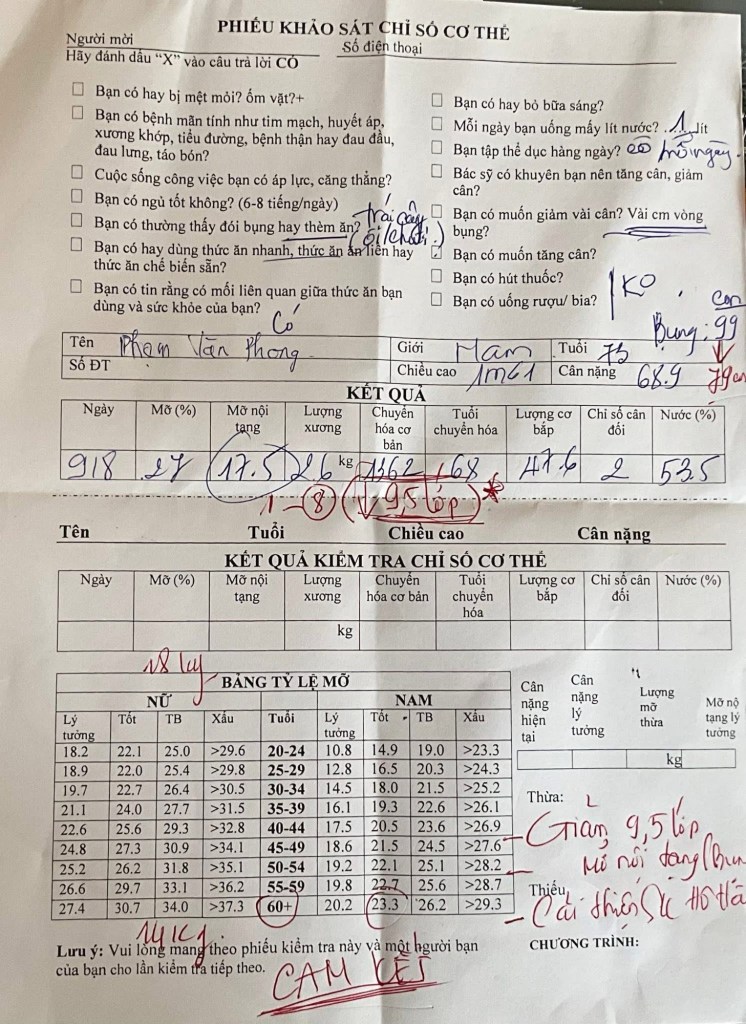 PHIẾU KHẢO SÁT CHỈ SỐ CƠ THỂ
Người mời
Số điện thoại
Hãy đánh dấu “X” vào câu trả lời CÓ
Bạn có hay bị mệt mỏi? ốm vặt?+
Bạn có bệnh mãn tính như tim mạch, huyết áp,
xương khớp, tiểu đường, bệnh thận hay đau đầu,
đau lưng, táo bón?
Cuộc sống công việc bạn có áp lực, căng thẳng?
Bạn có ngủ tốt không? (6-8 tiếng/ngày)
Bạn có thường thấy đói bụng hay thèm ăn? trái cây
Bạn có hay dùng thức ăn nhanh, thức ăn ăn liền hay
thức ăn chế biến sẵn?
Bạn có tin rằng có mối liên quan giữa thức ăn bạn
dùng và sức khỏe của bạn? Có
Bạn có hay bỏ bữa sáng?
Mỗi ngày bạn uống mấy lít nước? .1.lít
Bạn tập thể dục hàng ngày? có mỗi ngày.
Bác sỹ có khuyên bạn nên tăng cân, giảm
cân?
Bạn có muốn giảm vài cân? Vài cm vòng
bụng?
Bạn có muốn tăng cân?
Bạn có hút thuốc?
Bạn có uống rượu/ bia? KO
Bụng: 99
79
Tên Phạm Văn Phong Giới Nam Tuổi 73
Số ĐT Chiều cao 1m61 Cân nặng 68.9
KẾT QUẢ
Ngày Mỡ (%) Mỡ nội tạng Lượng xương Chuyển hóa cơ bản Tuổi chuyển hóa Lượng cơ bắp Chỉ số cân đối Nước (%)
9/8 27 17.5 2.6 kg 1362 68 47.6 2 53.5
1 – 8 (↓ 9,5 lớp)
Tên Tuổi Chiều cao Cân nặng
KẾT QUẢ KIỂM TRA CHỈ SỐ CƠ THỂ
Ngày Mỡ (%) Mỡ nội tạng Lượng xương Chuyển hóa cơ bản Tuổi chuyển hóa Lượng cơ bắp Chỉ số cân đối Nước (%)
kg
18 ký
BẢNG TỶ LỆ MỠ
NỮ NAM
Lý tưởng Tốt TB Xấu Tuổi Lý tưởng Tốt TB Xấu
18.2 22.1 25.0 >29.6 20-24 10.8 14.9 19.0 >23.3
18.9 22.0 25.4 >29.8 25-29 12.8 16.5 20.3 >24.3
19.7 22.7 26.4 >30.5 30-34 14.5 18.0 21.5 >25.2
21.1 24.0 27.7 >31.5 35-39 16.1 19.3 22.6 >26.1
22.6 25.6 29.3 >32.8 40-44 17.5 20.5 23.6 >26.9
24.8 27.3 30.9 >34.1 45-49 18.6 21.5 24.5 >27.6
25.2 26.2 31.8 >35.1 50-54 19.2 22.1 25.1 >28.2
26.6 29.7 33.1 >36.2 55-59 19.8 22.7 25.6 >28.7
27.4 30.7 34.0 >37.3 60+ 20.2 23.3 26.2 >29.3
Cân nặng hiện tại Cân nặng lý tưởng Lượng mỡ thừa Mỡ nộ tạng lý tưởng
kg
Thừa:
- Giảm 9,5 lớp
Mỡ nội tạng (Bụn
Thiếu
- Cải thiện
CHƯƠNG TRÌNH:
14 Kg
Lưu ý: Vui lòng mang theo phiếu kiểm tra này và một người bạn
của bạn cho lần kiểm tra tiếp theo.
CAM KẾT